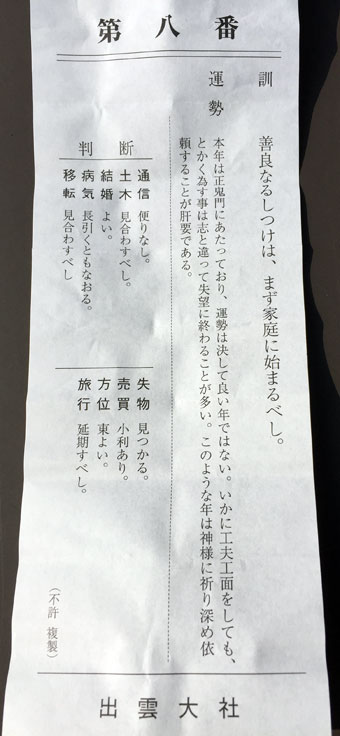 第八番
訓　善良なるしつけは、まず家庭に始まるべし。
運勢　本年は正鬼門にあたっており、運勢は決して良い年ではない。いかに工夫工面をしても、
とかく為す事は志と違って失望に終わることが多い。このような年は神様に祈り深め依
頼することが肝要である。
判断
通信　便りなし。
土木　見合わすべし。
結婚　よい。
病気　長引くともなおる。
移転　見合わすべし
失物　見つかる。
売買　小利あり。
方位　東よい。
旅行　延期すべし。
（不許 複製）
出雲大社